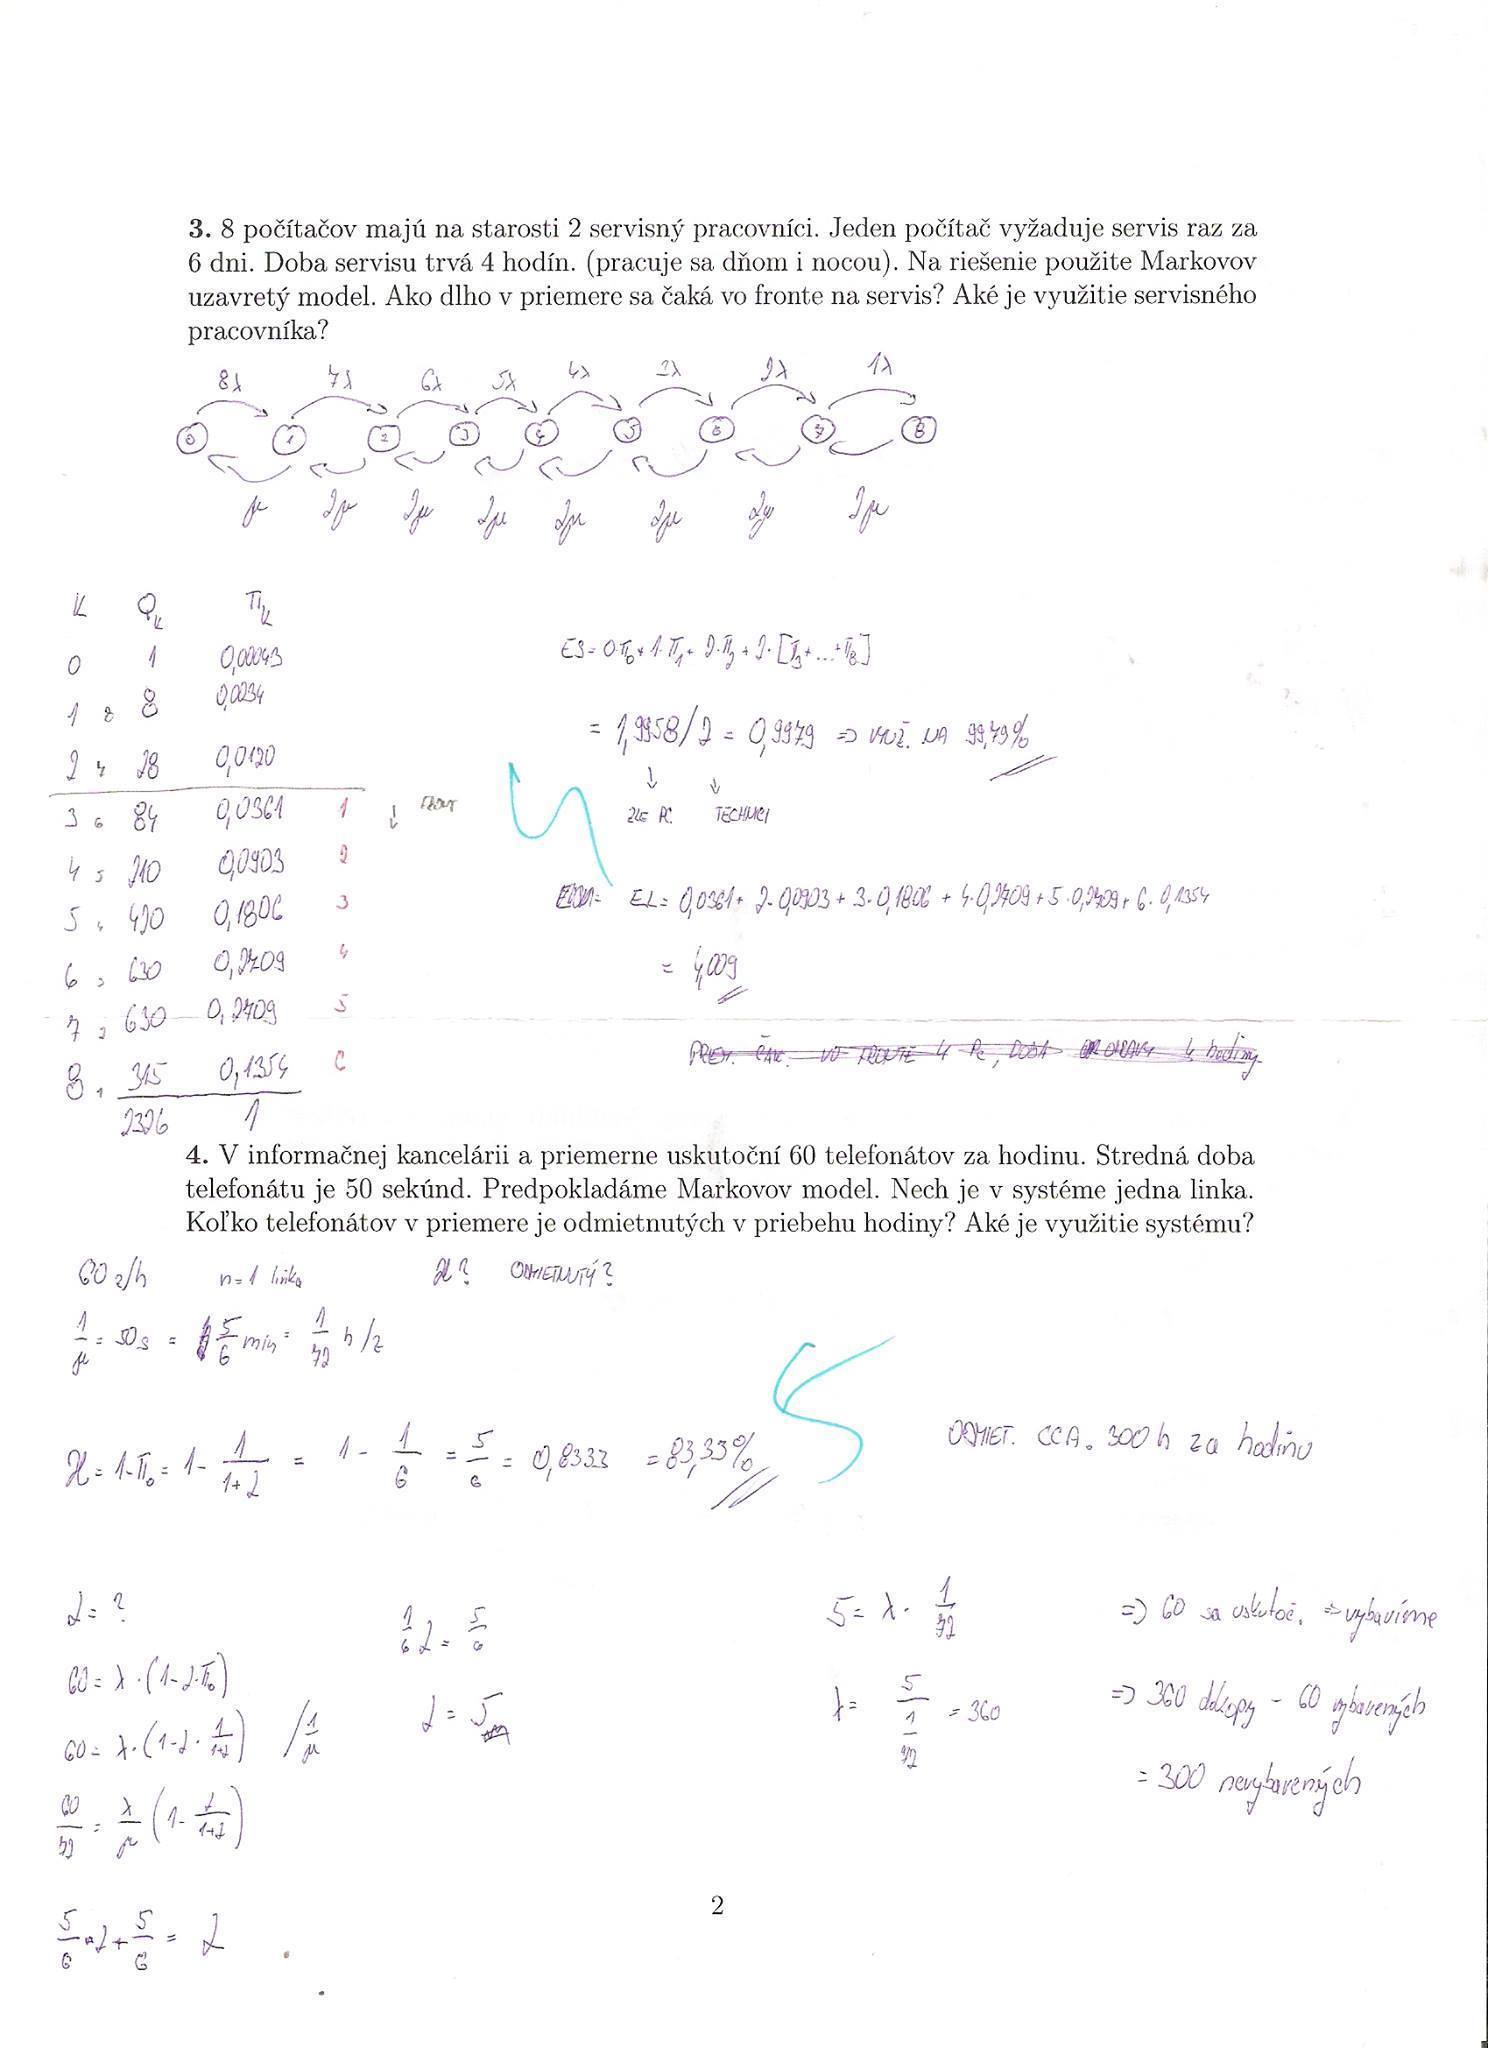 3. 8 počítačov majú na starosti 2 servisný pracovníci. Jeden počítač vyžaduje servis raz za
6 dni. Doba servisu trvá 4 hodín. (pracuje sa dňom i nocou). Na riešenie použite Markovov
uzavretý model. Ako dlho v priemere sa čaká vo fronte na servis? Aké je využitie servisného
pracovníka?
8λ 7λ 6λ 5λ 4λ 3λ 2λ 1λ
0 1 2 3 4 5 6 7 8
μ 2μ 2μ 2μ 2μ 2μ 2μ 2μ
K Q_K Π_K
0 1 0,00043
1 8 8 0,0034
2 28 0,0120
3 6 84 0,0361 1 ↓ FRONT
4 5 210 0,0903 2
5 4 420 0,1806 3
6 3 630 0,2709 4
7 2 630 0,2709 5
8 1 315 0,1354 6
2326 1
ES = 0·Π₀ + 1·Π₁ + 2·Π₂ + 2·[Π₃+...+Π₈]
= 1,9958/2 = 0,9979 => VYUŽ. NA 99,79%
↓ ↓
ZLE PC TECHNICI
EL = 0,0361 + 2·0,0903 + 3·0,1806 + 4·0,2709 + 5·0,2709 + 6·0,1354
= 4,009
PREM. ČAK. VO FRONTE 4 PC, DOBA OPRAVY 4 hodiny
4. V informačnej kancelárii a priemerne uskutoční 60 telefonátov za hodinu. Stredná doba
telefonátu je 50 sekúnd. Predpokladáme Markovov model. Nech je v systéme jedna linka.
Koľko telefonátov v priemere je odmietnutých v priebehu hodiny? Aké je využitie systému?
60 z/h n=1 linka ϰ? ODMIETNUTÝ?
1/μ = 50s = 5/6 min = 1/72 h/z
ϰ = 1-Π₀ = 1 - 1/(1+λ) = 1 - 1/6 = 5/6 = 0,8333 = 83,33%
ODMIET. CCA. 300 h za hodinu
λ = ?
60 = λ·(1-λ·Π₀)
60 = λ·(1-λ·1/(1+λ)) /1/μ
60/72 = λ/μ (1 - λ/(1+λ))
5/6·λ + 5/6 = λ
1/6 λ = 5/6
λ = 5
5 = λ · 1/72
λ = 5/(1/72) = 360
=> 60 sa uskutoč. => vybavíme
=> 360 dokopy - 60 vybavených
= 300 nevybavených
2